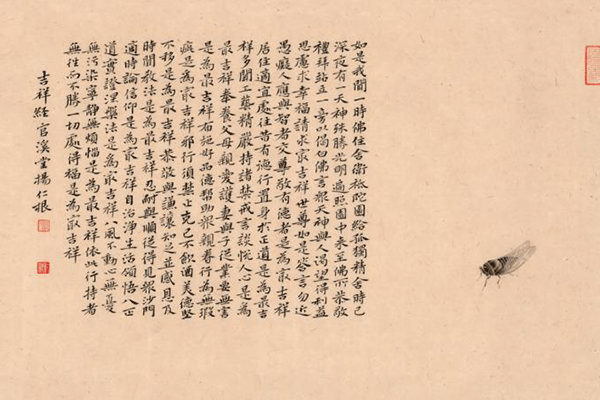 如是我聞一時佛住舍衛祇陀園給孤獨精舍時已
深夜有一天神殊勝光明遍照園中來至佛所恭敬
禮拜站立一旁以偈白佛言眾天神與人渴望得利益
思慮求幸福請求最吉祥世尊如是答言勿近
愚癡人應與智者交尊敬有德者是為最吉祥
居住適宜處往昔有德行置身於正道是為最吉
祥多聞工藝精嚴持諸禁戒言談悅人心是為
最吉祥奉養父母親愛護妻與子從業要無害
是為最吉祥布施好品德幫助眾親眷行為無瑕
疵是為最吉祥邪行須禁止克己不飲酒美德堅
不移是為最吉祥恭敬與謙讓知足並感恩及
時聞教法是為最吉祥忍耐與順從得見眾沙門
適時論信仰是為最吉祥自治淨生活領悟八正
道實證涅槃法是為最吉祥八風不動心無憂
無污染寧靜無煩惱是為最吉祥依此行持者
無往而不勝一切處得福是為最吉祥
吉祥經官溪堂揚仁根